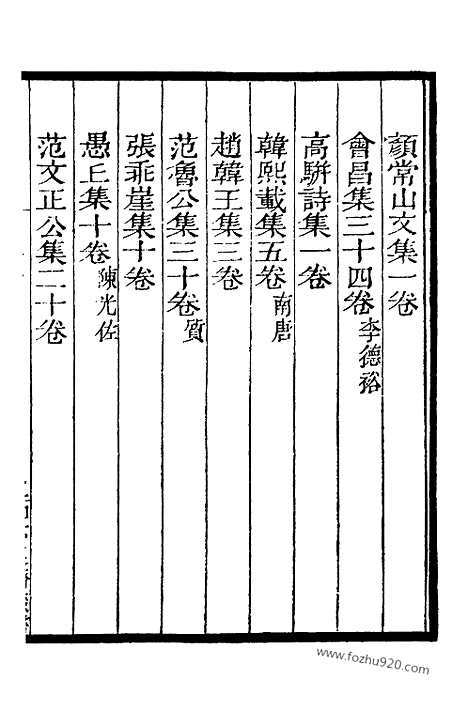 顏常山文集一卷
會昌集三十四卷李德裕
高駢詩集一卷
韓熙載集五卷南唐
趙韓王集三卷
范魯公集三十卷質
張乖崖集十卷
愚丘集十卷陳光佐
范文正公集二十卷
www.fozhu920.com